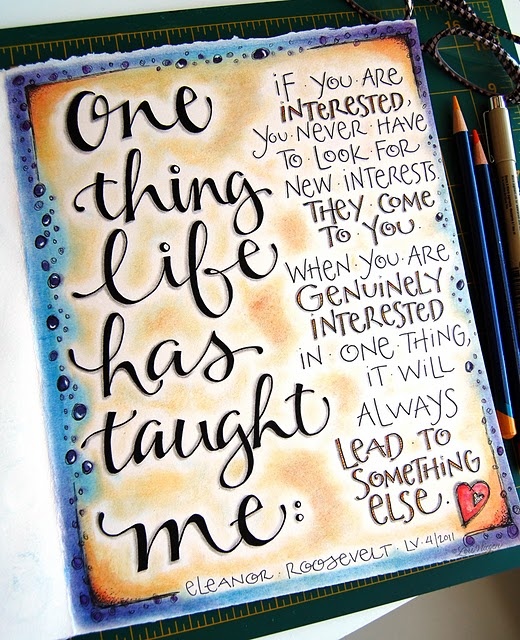 One
thing
life
has
taught
me:
IF YOU ARE
INTERESTED,
YOU NEVER HAVE
TO LOOK FOR
NEW INTERESTS
THEY COME
TO YOU.
WHEN YOU ARE
GENUINELY
INTERESTED
IN ONE THING,
IT WILL
ALWAYS
LEAD TO
SOMETHING
ELSE.
ELEANOR · ROOSEVELT · LV · 4/2011